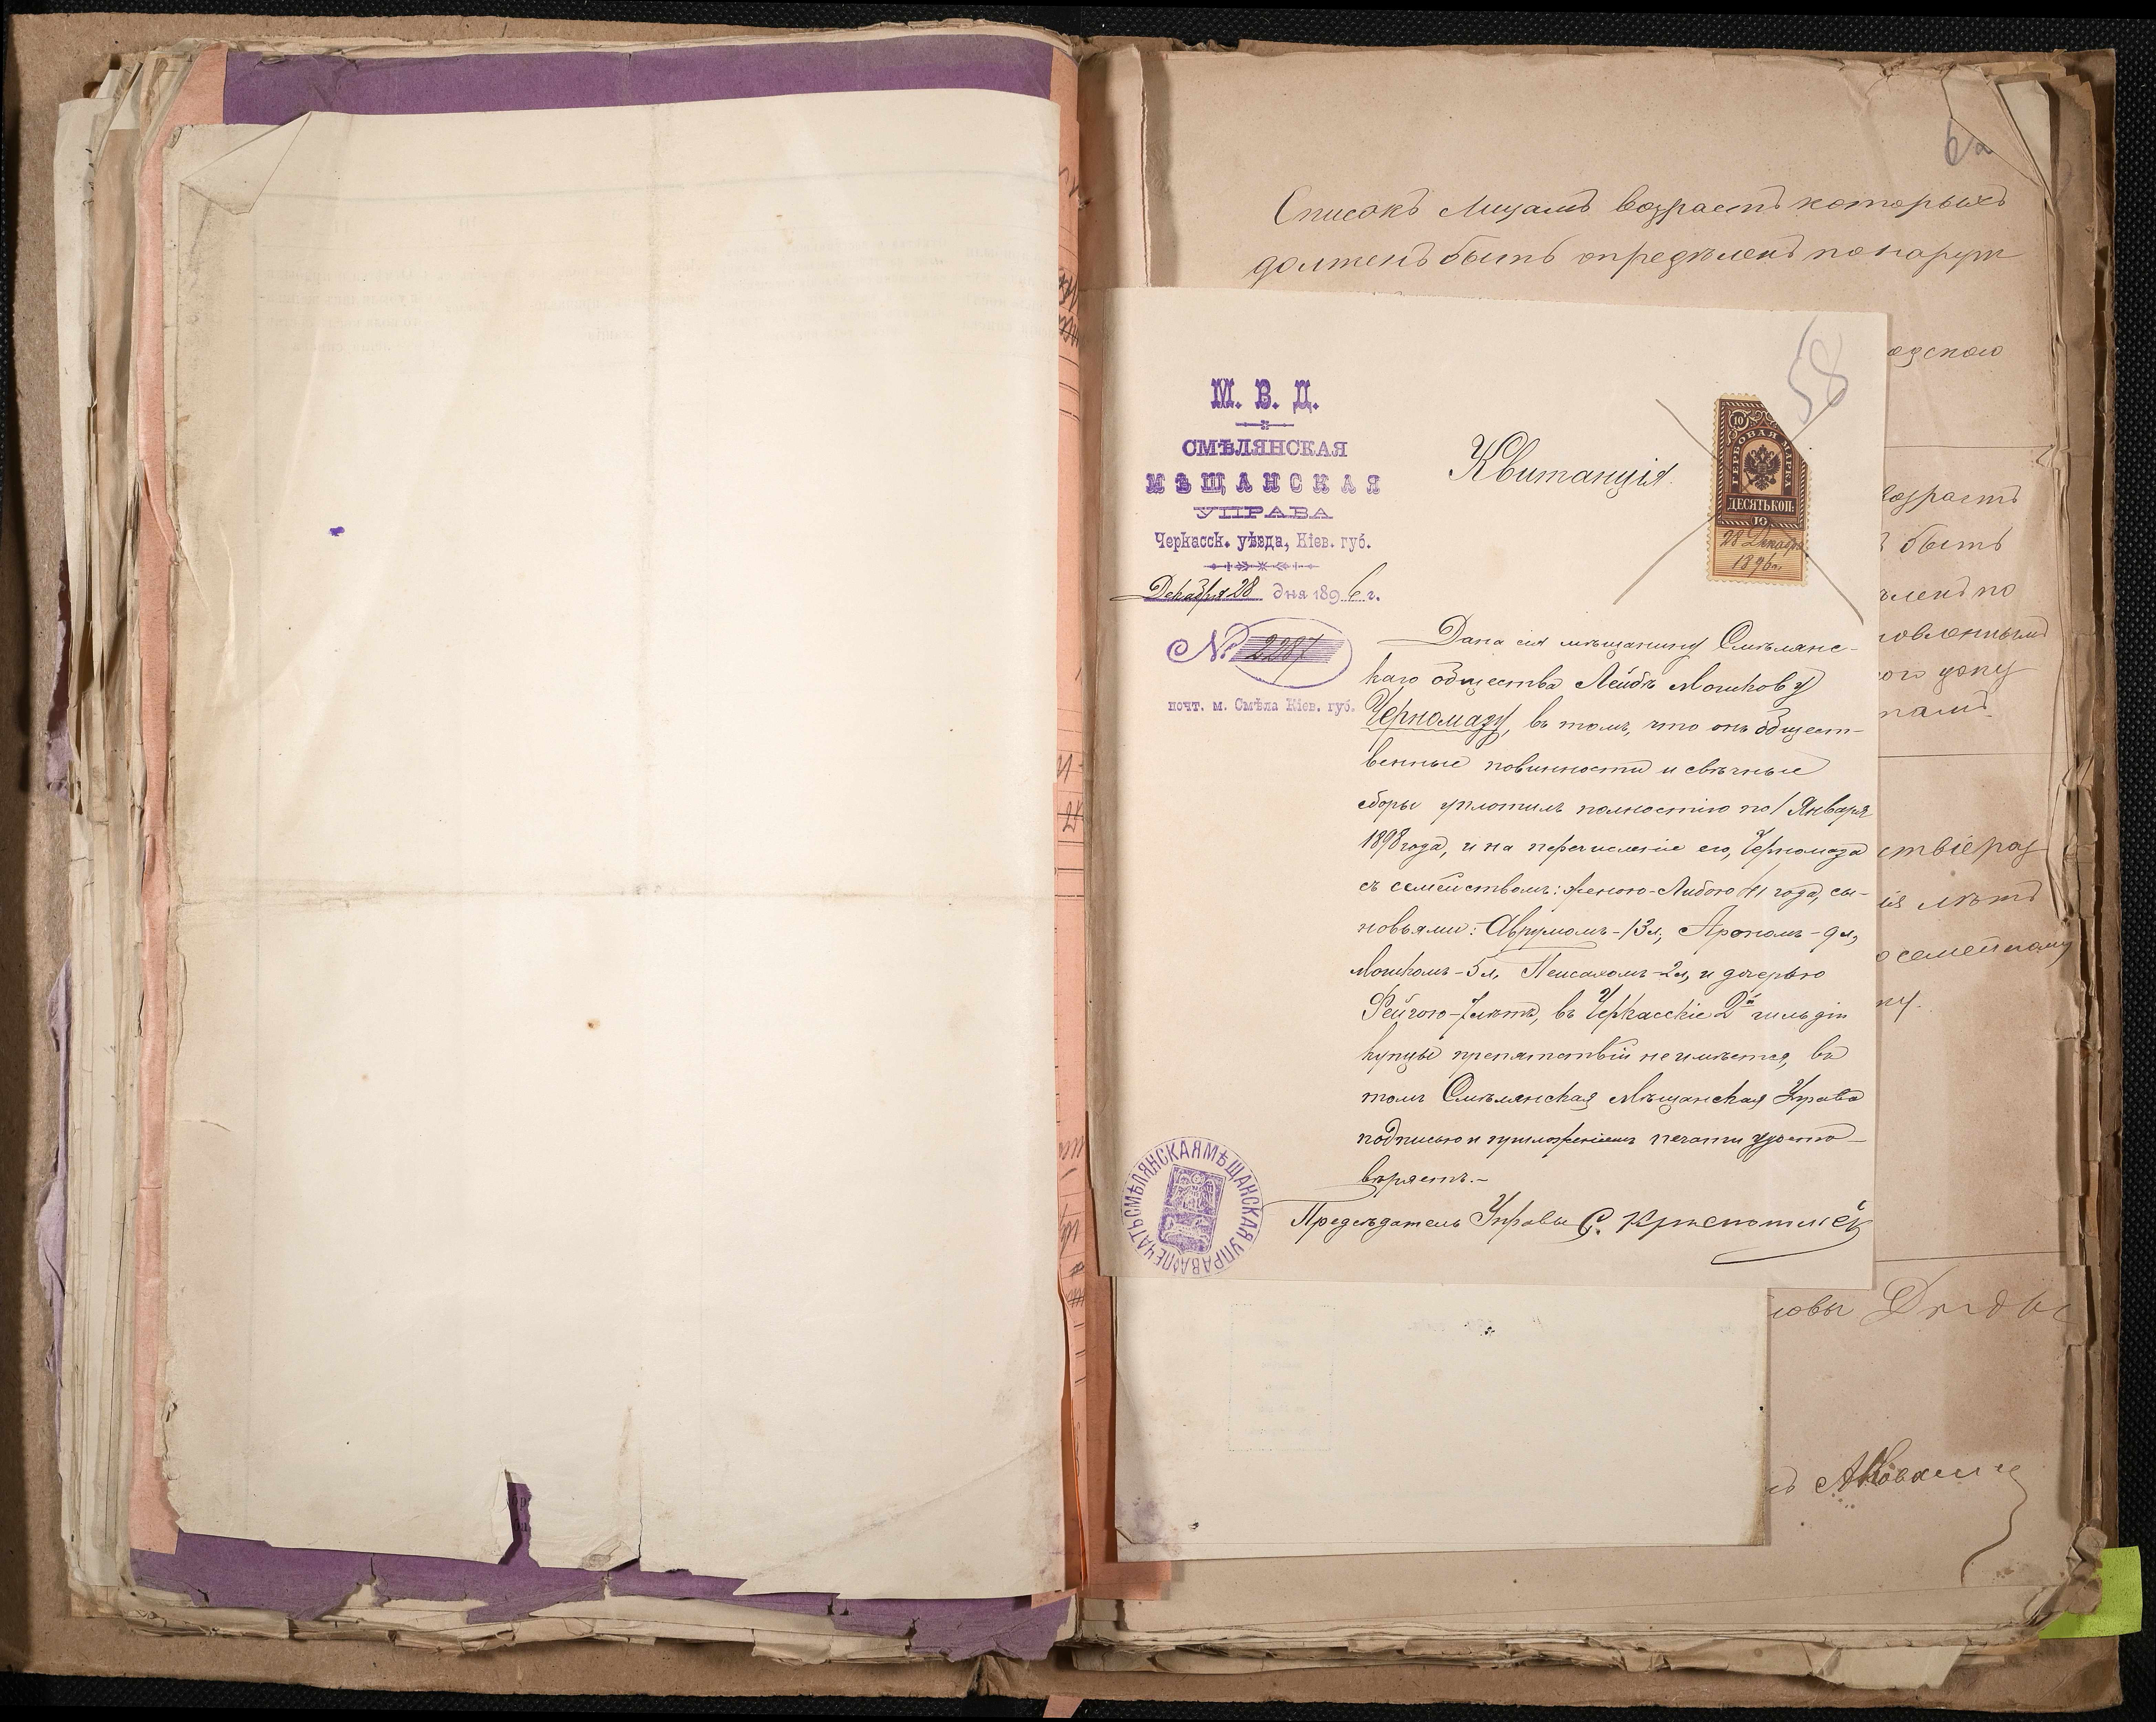 6а
Списокъ Мицамъ возрастъ которыхъ
долженъ быть опредѣленъ по наруж
одского
58
М. В. Д.
СМѢЛЯНСКАЯ
МѢЩАНСКАЯ
УПРАВА
Черкасск. уѣзда, Кіев. губ.
Декабря 28 дня 1896 г.
№ 2287
почт. м. Смѣла Кіев. губ.
Квитанція.
ГЕРБОВАЯ МАРКА
10
ДЕСЯТЬ КОП.
10
28 Декабря
1896 г.
Дана сія мѣщанину Смѣлянс-
каго общества Лейбѣ Мошкову
Черномазу, въ томъ, что онъ общест-
венные повинности и свѣчные
сборы уплотилъ полностію по 1 Января
1898 года, и на перечисленіе его, Черномаза
съ семействомъ: женою-Либою 41 года, сы-
новьями: Аврумомъ-13 л, Арономъ-9 л,
Мошкомъ-5 л, Пейсахомъ-2 л, и дочерью
Фейгою-7 лѣтъ, въ Черкасскіе 2й гильдіи
купцы препятствій не имѣется, въ
томъ Смѣлянская Мѣщанская Управа
подписью и приложеніемъ печати удосто-
вѣряетъ.-
Предсѣдатель Управы С.
ПЕЧАТЬ СМѢЛЯНСКАЯ МѢЩАНСКАЯ УПРАВА
возрастъ
быть
ленъ по
овленнымъ
ствіе
лѣтъ
о семейному